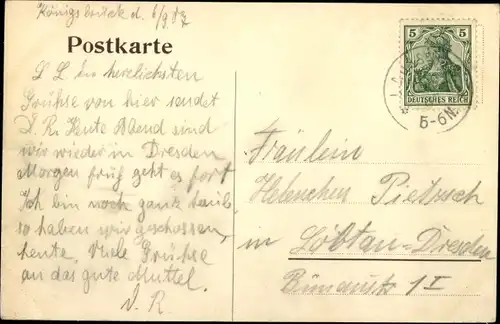 Königsbrück d. 6/9.07
Postkarte
L L die herzlichsten
Grühse von hier sendet
D. R. Heute Abend sind
wir wieder in Dresden
Morgen früh geht es fort
Ich bin noch ganz taub
so haben wir geschossen,
heute. Viele Grühse
an das gute Muttel.
D. R.
5 5
DEUTSCHES REICH
5-6N.
Fräulein
Helenchen Pietzsch
in Löbtau-Dresden
1 I